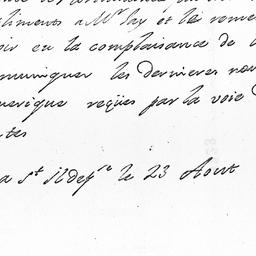 liments a Mr Jay et le reme
oir eu la complaisance de
muniquer les dernieres nou
merique reçües par la voie
tes
a St Ildepse le 23 Aout